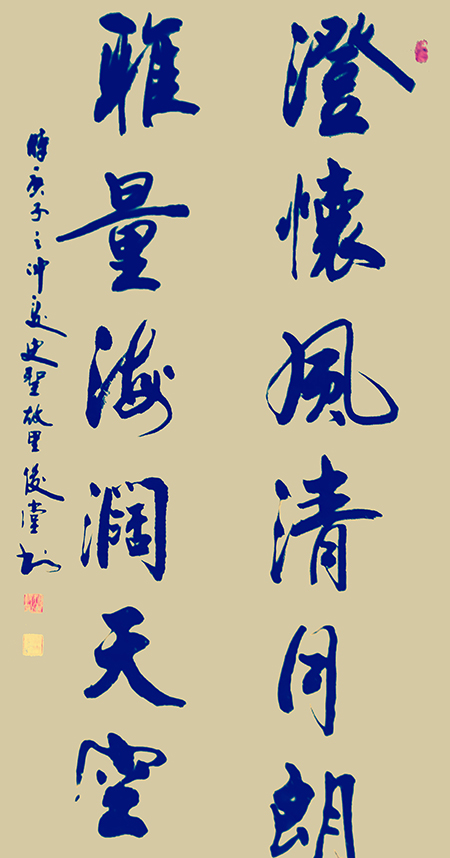 澄懷風清月朗
雅量海濶天空
時庚子之仲夏史聖故里